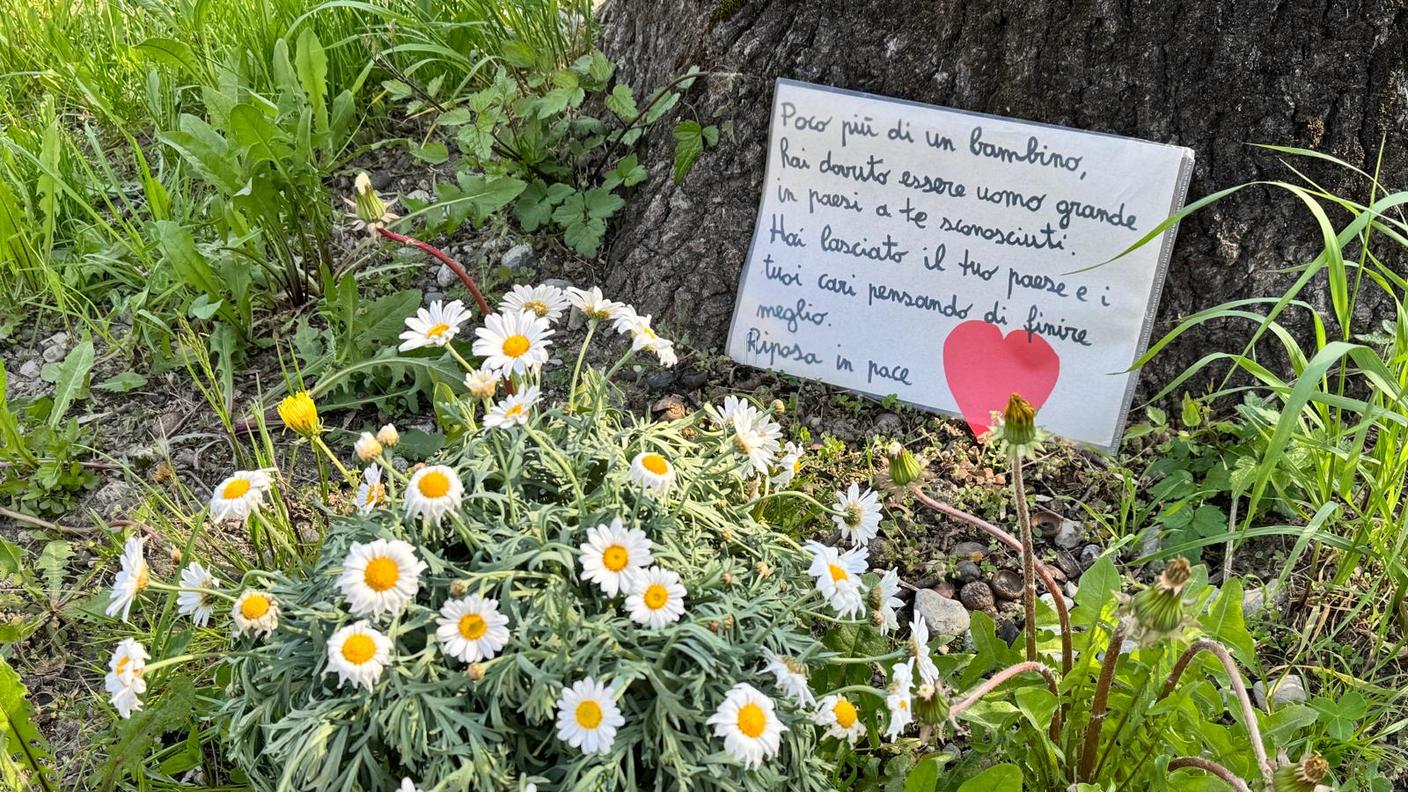 Poco più di un bambino,
hai dovuto essere uomo grande
in paesi a te sconosciuti.
Hai lasciato il tuo paese e i
tuoi cari pensando di finire
meglio.
Riposa in pace